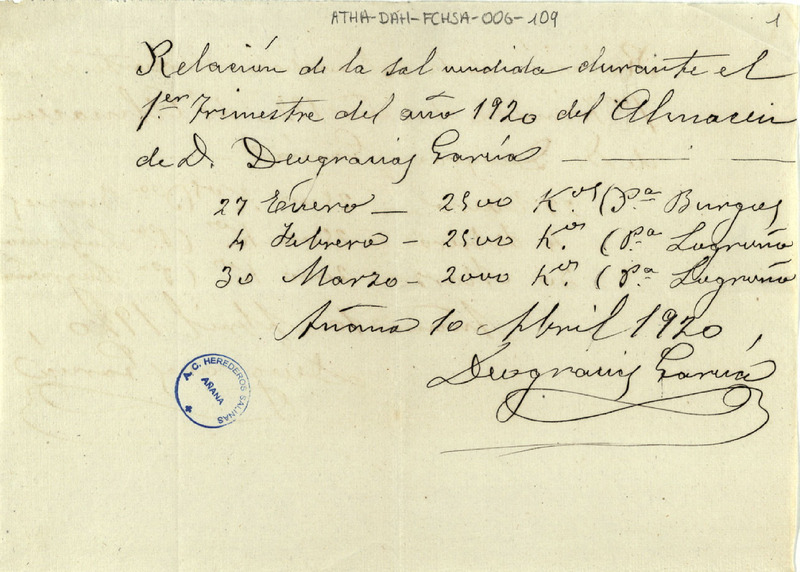 ATHA-DAH-FCHSA-006-109
1
Relación de la sal vendida durante el
1.er Trimestre del año 1920 del Almacen
de D. Deogracias García — — —
27 Enero — 2500 K.os (P.a Burgos
4 Febrero — 2500 K.os (P.a Logroño
30 Marzo — 2000 K.os (P.a Logroño
Añana 10 Abril 1920,
Deogracias García
A. C. HEREDEROS SALINAS
AÑANA